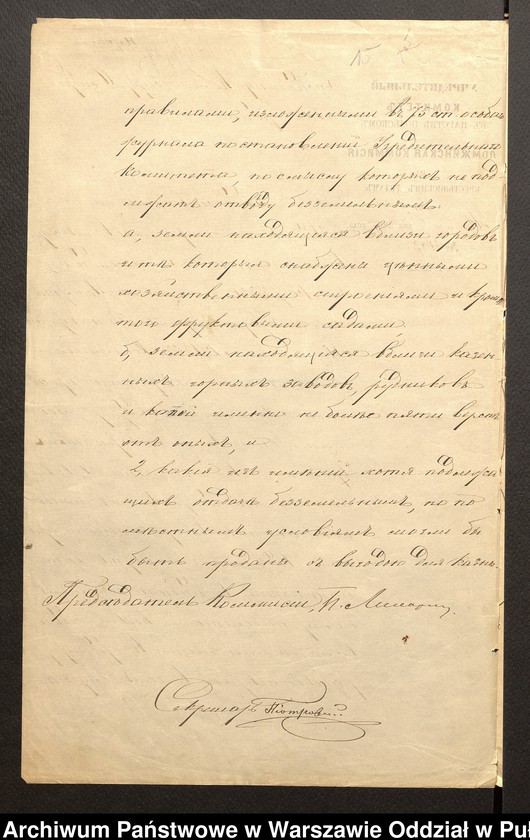 правилами, изложенными въ 75 ст. особаго
журнала постановленій Учредительнаго
Комитета, по смыслу которыхъ не под-
лежатъ отводу безземельнымъ
а, земли находящіяся вблизи городовъ
и тѣ которыя снабжены цѣнными
хозяйственными строеніями и кромѣ
того фруктовыми садами
б, земли находящіяся вблизи казен-
ныхъ горныхъ заводовъ, рудниковъ
и именно не болѣе пяти верстъ
отъ оныхъ, и
2, какія изъ имѣній хотя подлежа-
щихъ отдачѣ безземельнымъ, но по
мѣстнымъ условіямъ могли бы
быть проданы съ выгодою для казны.
Предсѣдатель Коммисіи,
Секретарь
УЧРЕДИТЕЛЬНЫЙ
КОМИТЕТЪ
КОМИСІЯ
Archiwum Państwowe w Warszawie Oddział w Pu